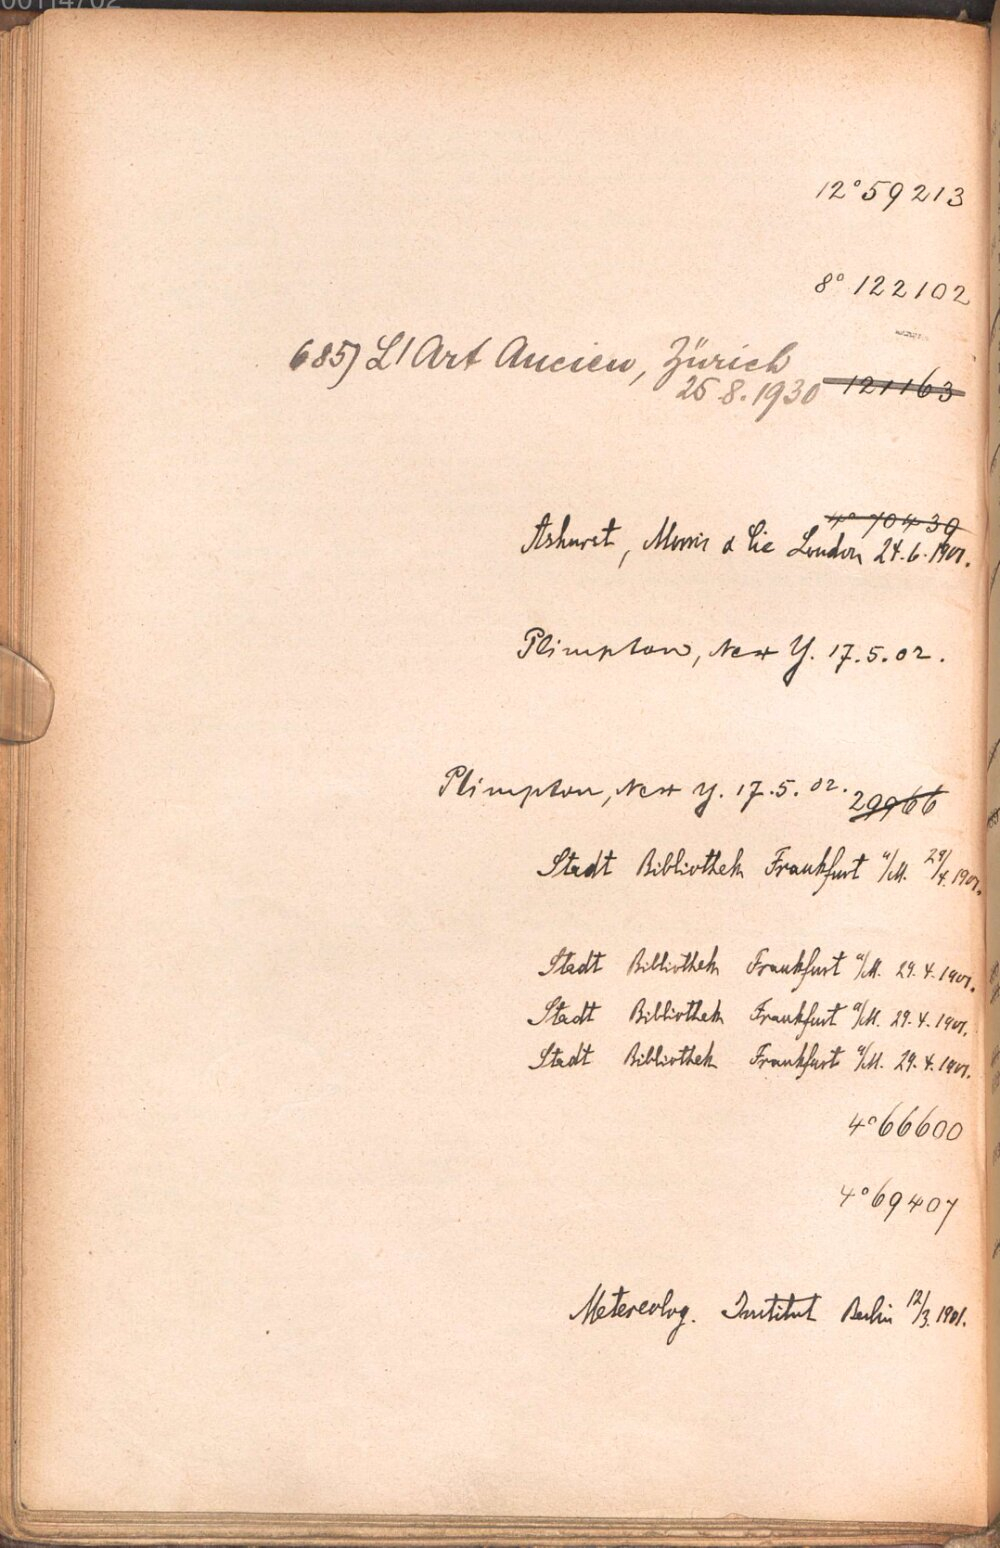 12° 59213
8° 122102
685) L'Art Ancien, Zürich
25.8.1930 121163
4° 70439
Ashurst, Morris & Cie London 24.6.1901.
Plimpton, New Y. 17.5.02.
Plimpton, New Y. 17.5.02. 29966
Stadt Bibliothek Frankfurt a/M. 29/4. 1901.
Stadt Bibliothek Frankfurt a/M. 29.4.1901.
Stadt Bibliothek Frankfurt a/M. 29.4.1901.
Stadt Bibliothek Frankfurt a/M. 29.4.1901.
4° 66600
4° 69407
Metereolog. Institut Berlin 12/3. 1901.